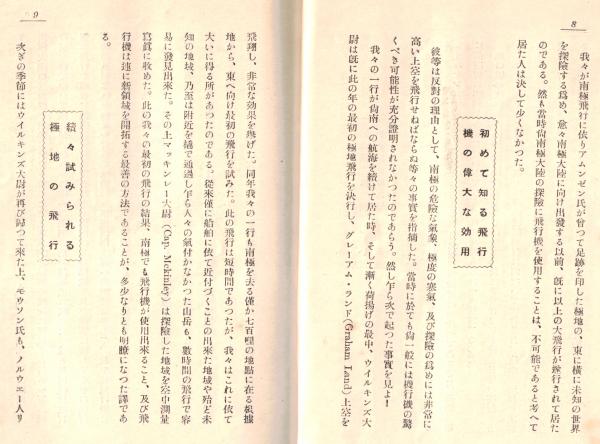 8
我々が南極飛行に依りアムンゼン氏が曾つて足跡を印した極地の、東に横に未知の世界
を探險する爲め、愈々南極大陸に向け出發する以前、既に以上の大飛行が遂行されて居た
のである。然も當時尙南極大陸の探險に飛行機を使用することは、不可能であると考へて
居た人は決して少くなかつた。
初めて知る飛行
機の偉大な効用
彼等は反對の理由として、南極の危險な氣象、極度の寒氣、及び探險の爲めには非常に
高い上空を飛行せねばならぬ等々の事實を指摘した。當時に於ても尙一般には機行機の驚
くべき可能性が充分證明されなかつたのであらう。然し乍ら次で起つた事實を見よ！
我々の一行が尙南への航海を續けて居た時、そして漸く荷揚げの最中、ウイルキンズ大
尉は既に此の年の最初の極地飛行を決行し、グレーアム・ランド(Graham Land)上空を
9
飛翔し、非常な効果を擧げた。同年我々の一行も南極を去る僅か七百哩の地點に在る根據
地から、東へ向け最初の飛行を試みた。此の飛行は短時間であつたが、我々はこれに依て
大いに得る所があつたのである。從來僅に船舶に依て近付づくことの出來た地域や殆ど未
知の地域、乃至は附近を橇で通過し乍ら人々の氣付かなかつた山岳も、數時間の飛行で容
易に發見出來た。その上マッキンレー大尉(Cap. Mckinley)は探險した地域を空中測量
寫眞に收めた。此の我々の最初の飛行の結果、南極でも飛行機が使用出來ること、及び飛
行機は速に新領域を開拓する最善の方法であることが、多少なりとも明瞭になつた譯であ
る。
續々試みられる
極地の飛行
次ぎの季節にはウイルキンズ大尉が再び歸つて來た上、モウソン氏も、ノルウェー人リ